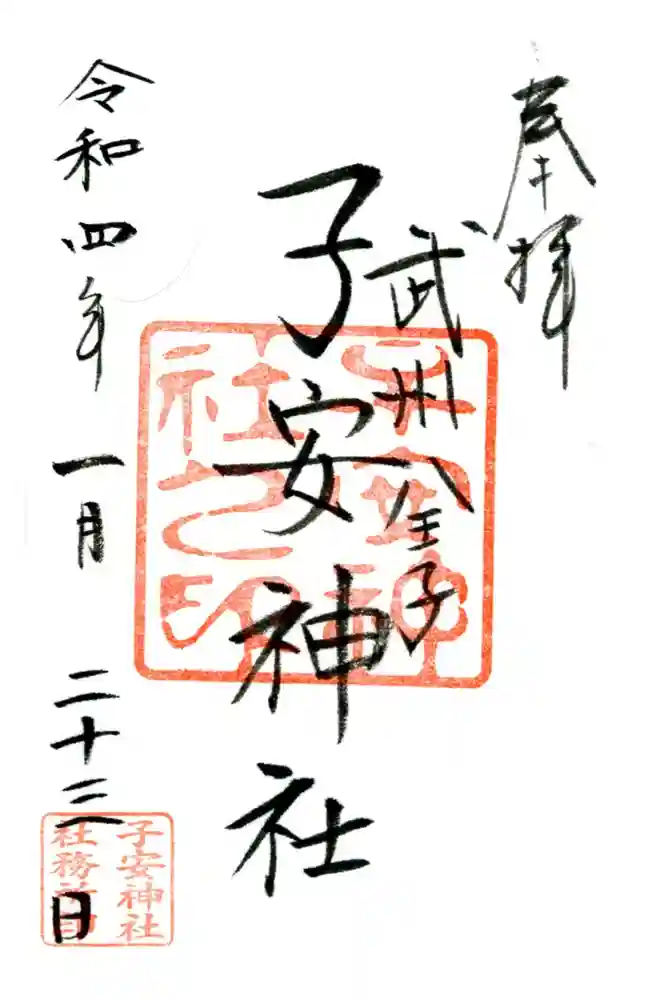 奉拝
武州八王子
子安神社
子安神社之印
令和四年一月二十三日
子安神社
社務所印